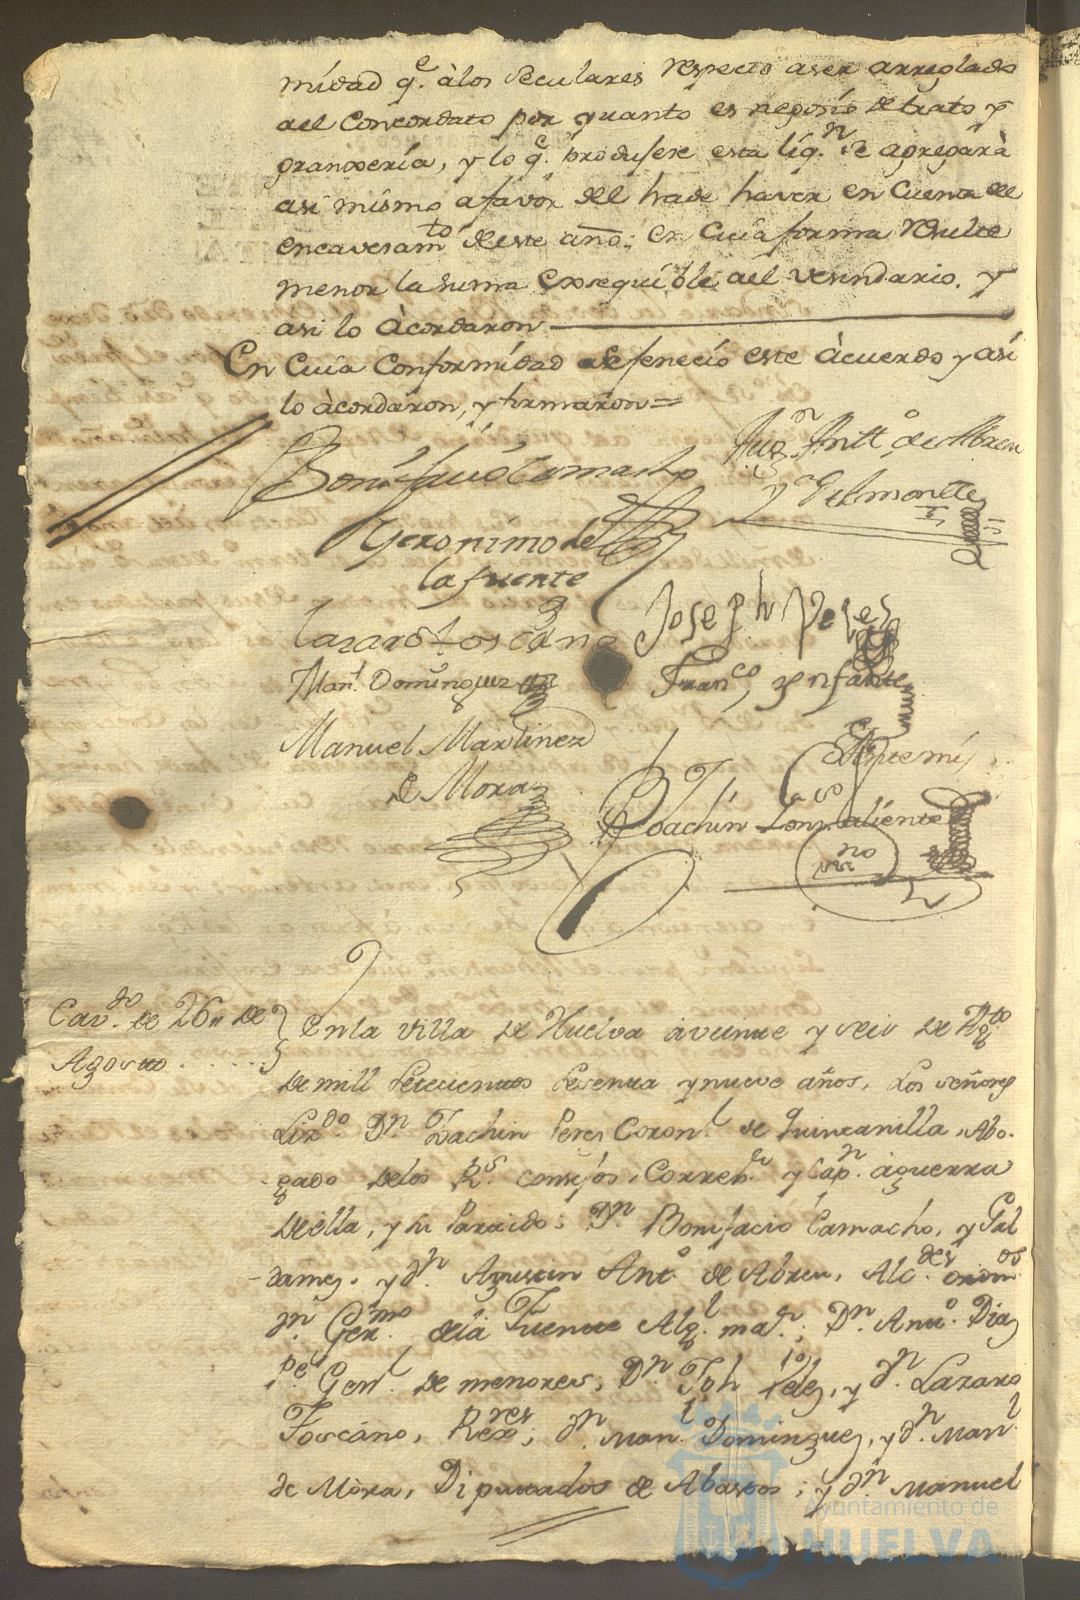 midad q.e à los Seculares respecto a ser arreglado
al Concordato por quanto es negosio de trato y
granxeria, y lo q.e produsere esta liq.n se agregarà
asi mismo a favor del hade haver en Cuenta del
encavesam.to de este año; en Cuia forma resulte
menor la suma exsequible al vesindario. Y
asi lo àcordaron
En Cuia Conformidad se fenecio este àcuerdo y asi
lo àcordaron, y firmaron=
Bonifacio Camacho
Aug.n Antt.o de Abreu
y Gelmonte
Geronimo de
la fuente
Joseph Peres
Lazaro toscano
Man.l Dominguez
Fran.co Ynfante
Manuel Martinez
de Mora
Ante mi,
Joachin
Cav.do de 26,, de
Agosto
En la villa de Huelva à veinte y seis de Ag.to
de mill Setecientos Sesenta y nueve años, Los señores
Liz.do D.n Joachin Peres Coron.l de Quintanilla, Abo-
gado de los R.s consejos, Correx.r y Cap.n à guerra
de ella, y su Partido; D.n Bonifacio Camacho, y Gal
dames, y d.n Agustin Ant.o de Abreu, Alc.des ordin.os
D.n Ger.mo de la Fuente Alg.l ma.r; D.n Ant.o Diaz
p.e Gen.l de menores; D.n Jph Peles, y d.n Lazaro
Toscano, Rex.res; d.n Man.l Dominguez, y d.n Man.l
de Mòra, Diputados de Abastos; y d.n Manuel
Ayuntamiento de
HUELVA